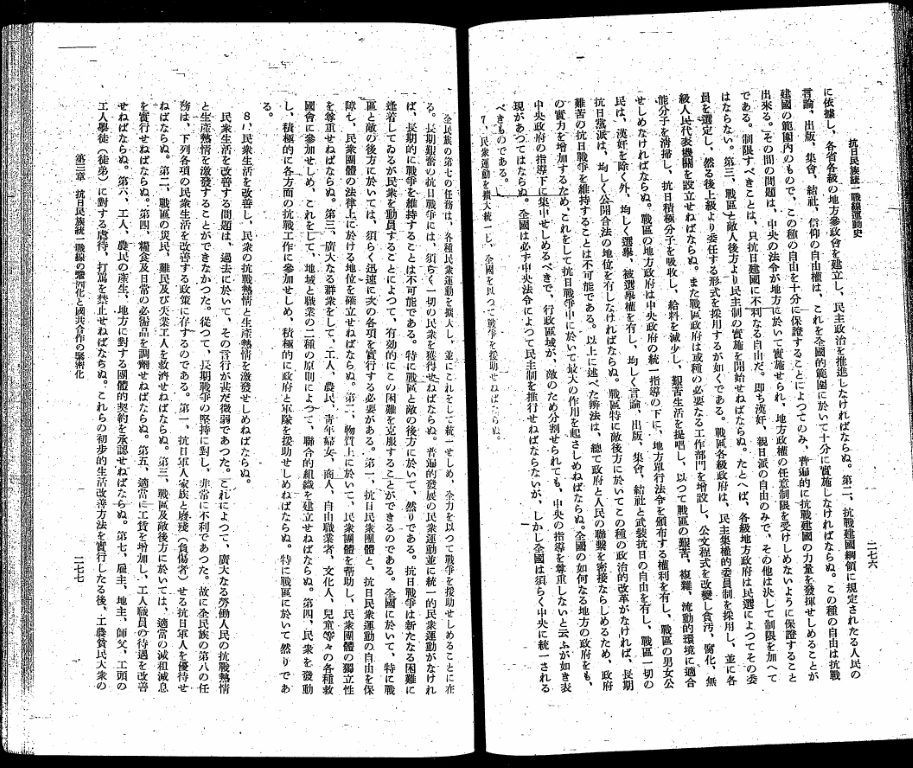 抗日民族統一戰線運動史
二七六
に依據し、各省各級の地方參政會を建立し、民主政治を推進しなければならぬ。第二、抗戰建國綱領に規定されたる人民の
言論、出版、集會、結社、信仰の自由權は、これを全國的範圍に於いて十分に實施しなければならぬ。この種の自由は抗戰
建國の範圍内のもので、この種の自由を十分に保證することによつてのみ、普遍的に抗戰建國の力量を發揮せしめることが
出來る。その間の問題は、中央の法令が地方に於いて實施せられ、地方政權の任意制限を受けしめないように保證すること
である。制限すべきことは、只抗日建國に不利なる自由だ。即ち漢奸、親日派の自由のみで、その他は決して制限を加へて
はならない。第三、戰區と敵人後方より民主制の實施を開始せねばならぬ。たとへば、各級地方政府は民選によつてその委
員を選定し、然る後上級より委任する形式を採用するが如くである。戰區各級政府は、民主集權的委員制を採用し、並に各
級人民代表機關を設立せねばならぬ。また戰區政府は或種の必要なる工作部門を增設し、公文程式を改變し貪汚、腐化、無
能分子を清掃し、抗日積極分子を吸收し、給料を減少し、艱苦生活を提唱し、以つて戰區の艱苦、複雜、流動的環境に適合
せしめなければならぬ。戰區の地方政府は中央政府の統一指導の下に、地方單行法令を頒布する權利を有し、戰區の男女公
民は、漢奸を除く外、均しく選擧、被選擧權を有し、均しく言論、出版、集會、結社と武裝抗日の自由を有し、戰區一切の
抗日黨派は、均しく公開合法の地位を有しなければならぬ。戰區特に敵後方に於いてこの種の政治的改革がなければ、長期
艱苦の抗日戰爭を維持することは不可能である。以上に述べた辨法は、總て政府と人民の聯繫を密接ならしめるため、政府
の實力を增加するため、これをして抗日戰爭中に於いて最大の作用を起さしめねばならぬ。全國の如何なる地方の政府をも、
中央政府の指導下に集中せしめるべきで、行政區域が、敵のため分割せられても、中央の指導を尊重しないと云ふが如き表
現があつてはならぬ。全國は必ず中央法令によつて民主制を推行せねばならないが、しかし全國は須らく中央に統一される
べきものである。
7、民衆運動を擴大統一し、全國を以つて戰爭を援助せねばならぬ。
全民族の第七の任務は、各種民衆運動を擴大し、並にこれをして統一せしめ、全力を以つて戰爭を援助せしめることに在
る。長期艱苦の抗日戰爭には、須らく一切の民衆を獲得せねばならぬ。普遍的發展の民衆運動並に統一的民衆運動がなけれ
ば、長期的に戰爭を維持することは不可能である。特に戰區と敵の後方に於いて、然りである。抗日戰爭は新たなる困難に
逢着してゐるが民衆を動員することによつて、有効的にこの困難を克服することができるのである。全國に於いて、特に戰
區と敵の後方に於いては、須らく迅速に次の各項を實行する必要がある。第一、抗日民衆團體と、抗日民衆運動の自由を保
障し、民衆團體の法律上に於ける地位を確立せねばならぬ。第二、物質上に於いて、民衆團體を幇助し、民衆團體の獨立性
を尊重せねばならぬ。第三、廣大なる群衆をして、工人、農民、青年婦女、商人、自由職業者、文化人、兒童等々の各種救
國會に參加せしめ、これをして、地域と職業の二種の原則によつて、聯合的組織を建立せねばならぬ。第四、民衆を發動
し、積極的に各方面の抗戰工作に參加せしめ、積極的に政府と軍隊を援助せしめねばならぬ。特に戰區に於いて然りであ
る。
8、民衆生活を改善し、民衆の抗戰熱情と生產熱情を激發せしめねばならぬ。
民衆生活を改善する問題は、過去に於いて、その言行が甚だ微弱であつた。これによつて、廣大なる勞働人民の抗戰熱情
と生產熱情を激發することができなかつた。從つて、長期戰爭の堅持に對し、非常に不利であつた。故に全民族の第八の任
務は、下列各項の民衆生活を改善する政策に存するのである。第一、抗日軍人家族と廢殘(負傷者)せる抗日軍人を優待せ
ねばならぬ。第二、戰區の災民、難民及び失業工人を救濟せねばならぬ。第三、戰區及敵後方に於いては、適當の減租減息
を實行せねばならぬ。第四、糧食及日常の必需品を調劑せねばならぬ。第五、適當に工賃を增加し、工人職員の待遇を改善
せねばならぬ。第六、工人、農民の產生、地方に對する團體的契約を承認せねばならぬ。第七、雇主、地主、師父、工頭の
工人學徒(徒弟)に對する虐待、打罵を禁止せねばならぬ。これらの初步的生活改善方法を實行したる後、工農貧民大衆の
第三章 抗日民族統一戰線の鞏固化と國共合作の緊密化
二七七